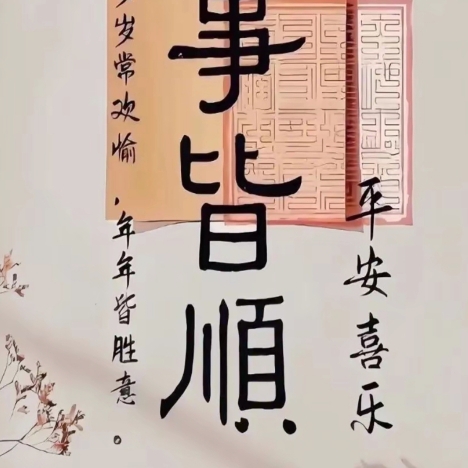 平安喜乐
事皆順
岁常欢愉，年年皆胜意。